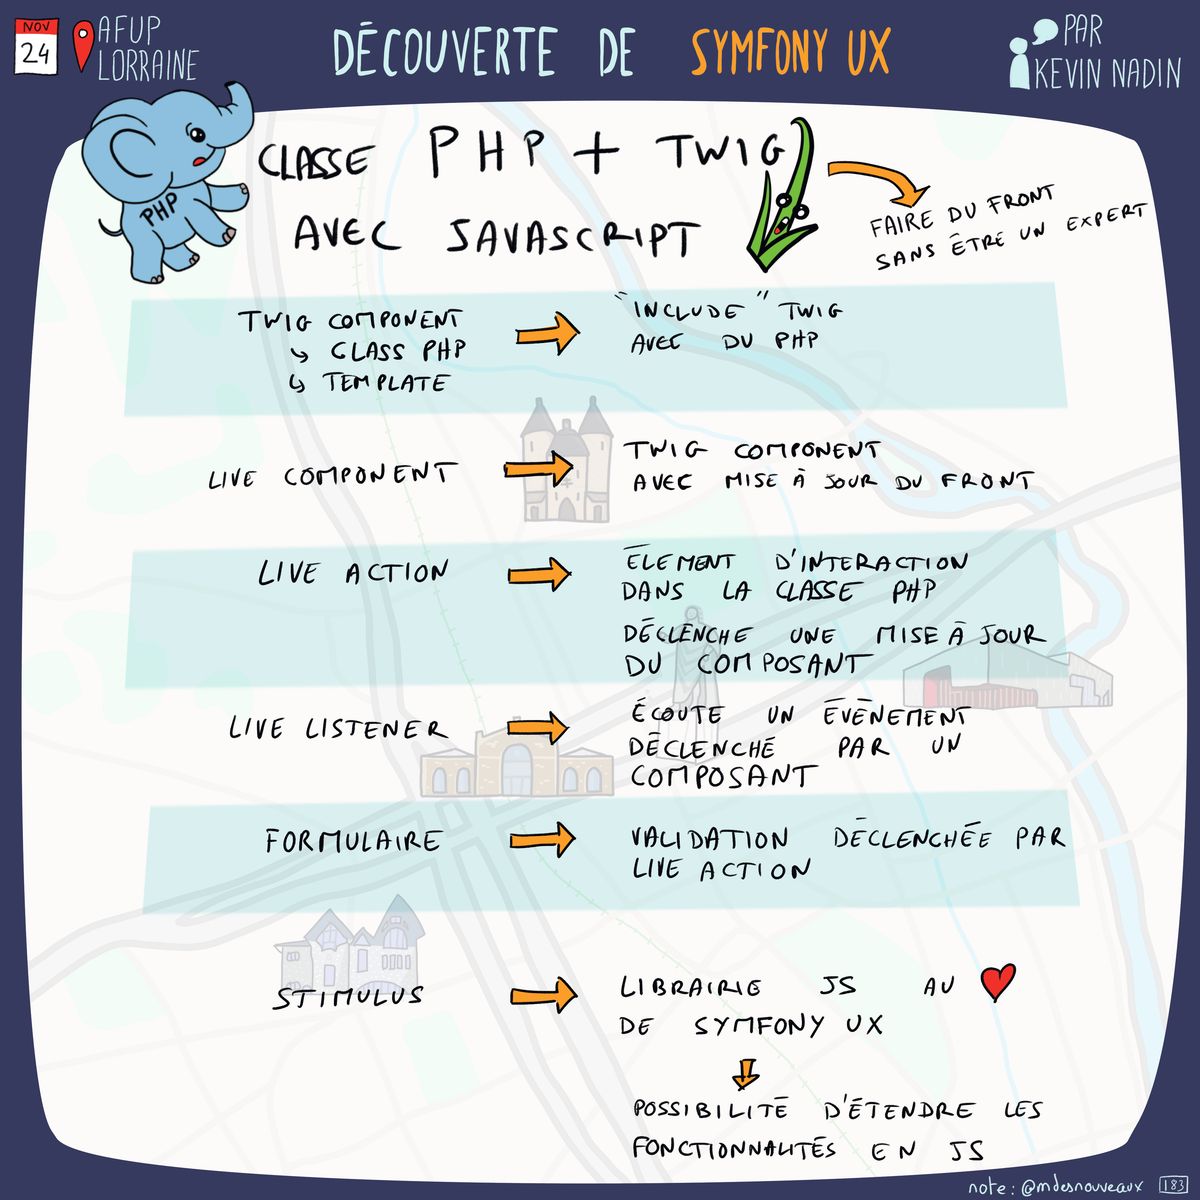 NOV
24
AFUP
LORRAINE
DÉCOUVERTE DE SYMFONY UX
PAR
KEVIN NADIN
PHP
CLASSE PHP + TWIG
AVEC JAVASCRIPT
FAIRE DU FRONT
SANS ÊTRE UN EXPERT
TWIG COMPONENT
↳ CLASS PHP
↳ TEMPLATE
"INCLUDE" TWIG
AVEC DU PHP
LIVE COMPONENT
TWIG COMPONENT
AVEC MISE À JOUR DU FRONT
LIVE ACTION
ÉLEMENT D'INTERACTION
DANS LA CLASSE PHP
DÉCLENCHE UNE MISE À JOUR
DU COMPOSANT
LIVE LISTENER
ÉCOUTE UN ÉVÈNEMENT
DÉCLENCHÉ PAR UN
COMPOSANT
FORMULAIRE
VALIDATION DÉCLENCHÉE PAR
LIVE ACTION
STIMULUS
LIBRAIRIE JS AU ❤
DE SYMFONY UX
POSSIBILITÉ D'ÉTENDRE LES
FONCTIONNALITÉS EN JS
note : @mdesnouveaux 183